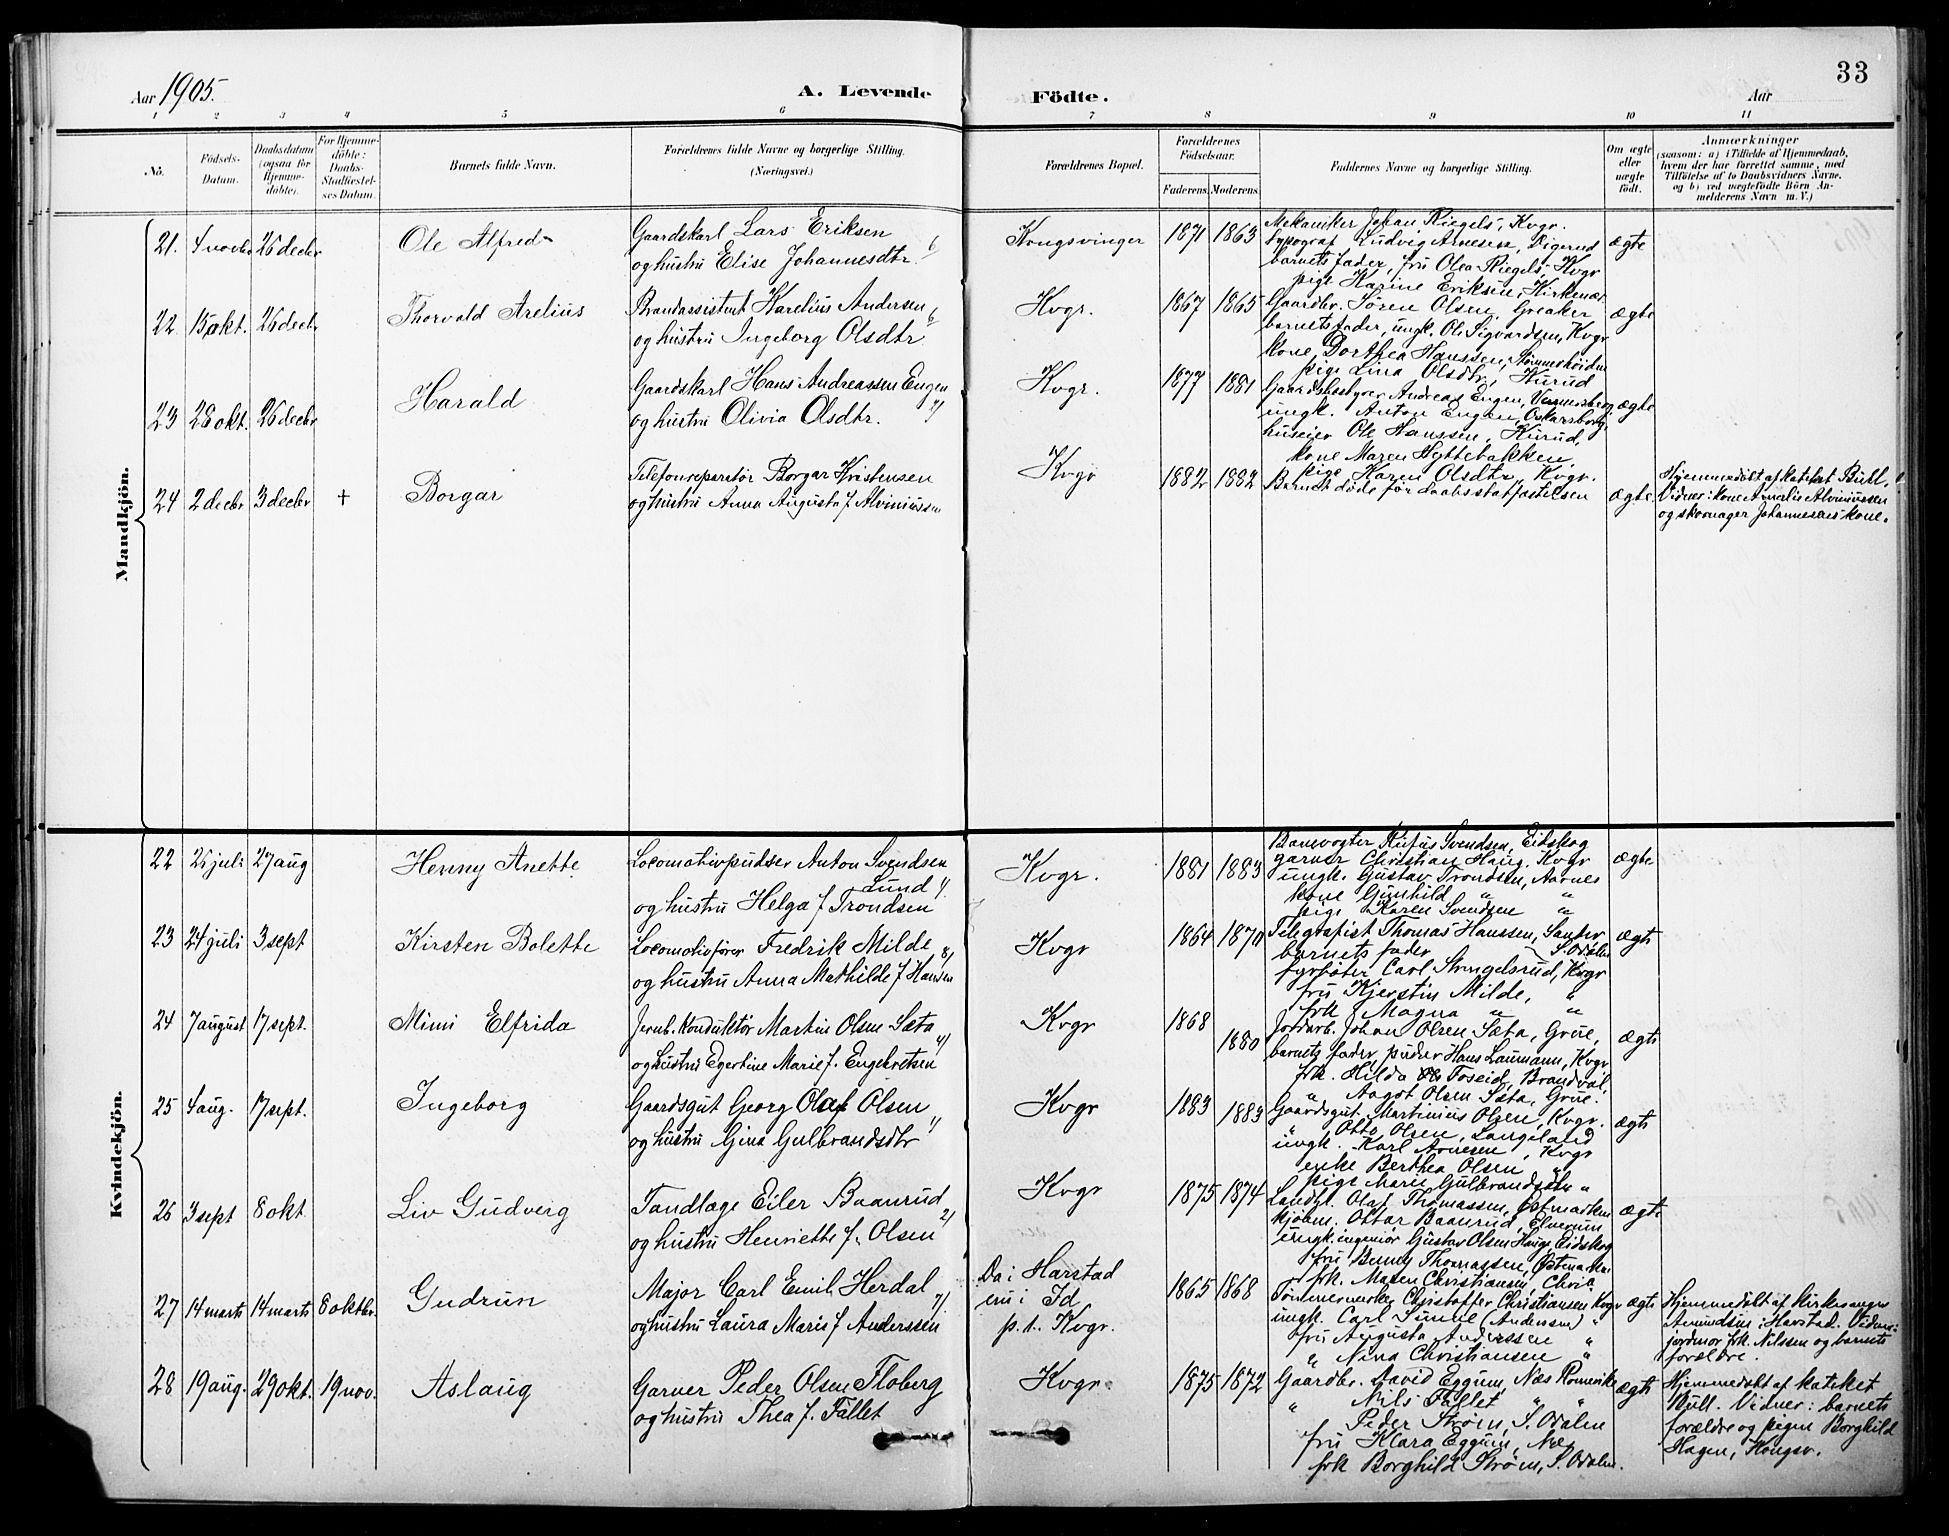 33
Aar 1905.
A. Levende Födte.
Aar
1 2 3 4 5 6 7 8 9 10 11
No.
Födsels-Datum.
Daabsdatum (ogsaa for Hjemme-døbte).
For Hjemme-döbte: Daabs-Stadfæstel-ses Datum.
Barnets fulde Navn.
Forældrenes fulde Navne og borgerlige Stilling.
(Næringsvei.)
Forældrenes Bopæl.
Forældrenes Födselsaar.
Faderens. Moderens.
Faddernes Navne og borgerlige Stilling.
Om ægte eller uægte født.
Anmærkninger
(saasom: a) i Tilfælde af Hjemmedaab,
hvem der har forrettet samme, med
Tilföielse af to Daabsvidners Navne,
og b) ved uægtefödte Börn An-
melderens Navn m. V.)
Mandkjön.
21. 4 novbr 26 decbr Ole Alfred
Gaardskarl Lars Eriksen
og hustru Elise Johannesdtr. 6/
Kongsvinger 1871 1863
Mekaniker Johan Riegels, Kvgr.
typograf Ludvig Arnesen, Digerud
barnets fader, fru Olea Riegels, Kvgr
pige Karine Eriksen, Kirkenær
ægte
22 15 okt. 26 decbr Thorvald Arelius
Brandassistent Karelius Andersen
og hustru Ingeborg Olsdtr 6/
Kvgr. 1867 1865
Gaardbr. Søren Olsen, Greaker
barnets fader, ungk. Ole Sigvardsen, Kvgr
kone Dorthea Hanssen,
pige Lina Olsdtr, Kurud
ægte
23 28 okt. 26 decbr Harald
Gaardskarl Hans Andreassen Engen
og hustru Olivia Olsdtr.
Kvgr. 1877 1881
Gaardsbestyrer Andreas Engen,
ungk. Anton Engen, Oskarsborg,
huseier Ole Hanssen, Kurud,
kone Maren Hyttebakken,
pige Karen Olsdtr, Kvgr.
ægte
24 2 decbr 3 decbr + Borgar
Telefonreparatør Borgar Kristensen
og hustru Anna Augusta f Alviniussen
Kvgr 1882 1882
Barnet døde før daabsstatfæstelsen
ægte.
Hjemmedøbt af kateket Bull.
Vidner: kone Amalie Alviniussen
og skomager Johannesens kone.
Kvindekjön.
22 26 juli 27 aug Henny Anette
Locomotivpudser Anton Svendsen
Lund 1/
og hustru Helga f Trondsen
Kvgr. 1881 1883
Banevogter Rufus Svendsen, Eidskog
garver Christian Haug, Kvgr
ungk. Gustav Trondsen, Aarnes
kone Gunhild " "
pige Karen Svendsen "
ægte
23 24 juli 3 sept Kirsten Bolette
Locomotivfører Fredrik Milde 8/
og hustru Anna Mathilde f Hansen
Kvgr 1864 1870
Telegrafist Thomas Hanssen, Sander
barnets fader S. Odalen
fyrbøter Carl Strengelsrud, Kvgr
fru Kjerstin Milde, "
frk Magna " "
ægte
24 7 august 17 sept. Mimi Elfrida
Jernb. konduktør Martin Olsen Sæta 4/
og hustru Egertine Marie f. Engebretsen
Kvgr 1868 1880
Jordarb. Johan Olsen Sæta, Grue,
barnets fader, pudser Hans Laumann, Kvgr
frk. Hilda Foseid, Brandval
" Aagot Olsen Sæta, Grue.
ægte
25 4 aug. 17 sept. Ingeborg
Gaardsgut Georg Olaf Olsen 1/
og hustru Gina Gulbrandsdtr
Kvgr 1883 1883
Gaardsgut Martinius Olsen, Kvgr.
" Otto Olsen, Langeland
ungk. Karl Arnesen, Kvgr
enke Berthea Olsen "
pige Marie Gulbrandsdtr "
ægte
26 3 sept 8 okt. Liv Gudveig
Tandlæge Eiler Baanrud 2/
og hustru Henriette f. Olsen
Kvgr 1875 1874
Landhl. Olaf Thomassen, Østmarken
kjøbm. Ottar Baanrud, Elverum
ungk. ingeniør Gustav Olsen Hauge, Eidskog
fru Benny Thomassen, Østmarken
frk. Maren Christiansen, Chria
ægte
27 14 marts 14 marts 8 oktbr. Gudrun
Major Carl Emil Herdal 7/
og hustru Laura Marie f Anderssen
Da i Harstad
nu i Id
p. t. Kvgr.
1865 1868
Tømmermerker Christoffer Christiansen Kvgr
ungk. Carl (Anderssen) "
fru Augusta Anderssen "
" Nina Christiansen "
ægte
Hjemmedøbt af kirkesanger
Amundsen i Harstad. Vidner:
jordmor frk. Nilssen og barnets
forældre.
28 19 aug. 29 okt. 19 nov. Aslaug
Garver Peder Olsen Floberg
og hustru Thea f. Fallet
Kvgr. 1875 1872
Gaardbr. David Eggum, Næs Romerike
" Nils Fallet " "
Peder Strøm, S. Odalen
fru Klara Eggum, Næs
frk Borghild Strøm, S. Odalen.
ægte
Hjemmedøbt af kateket
Bull. Vidner: barnets
forældre og pigen Borghild
Hagen, Kongsv.